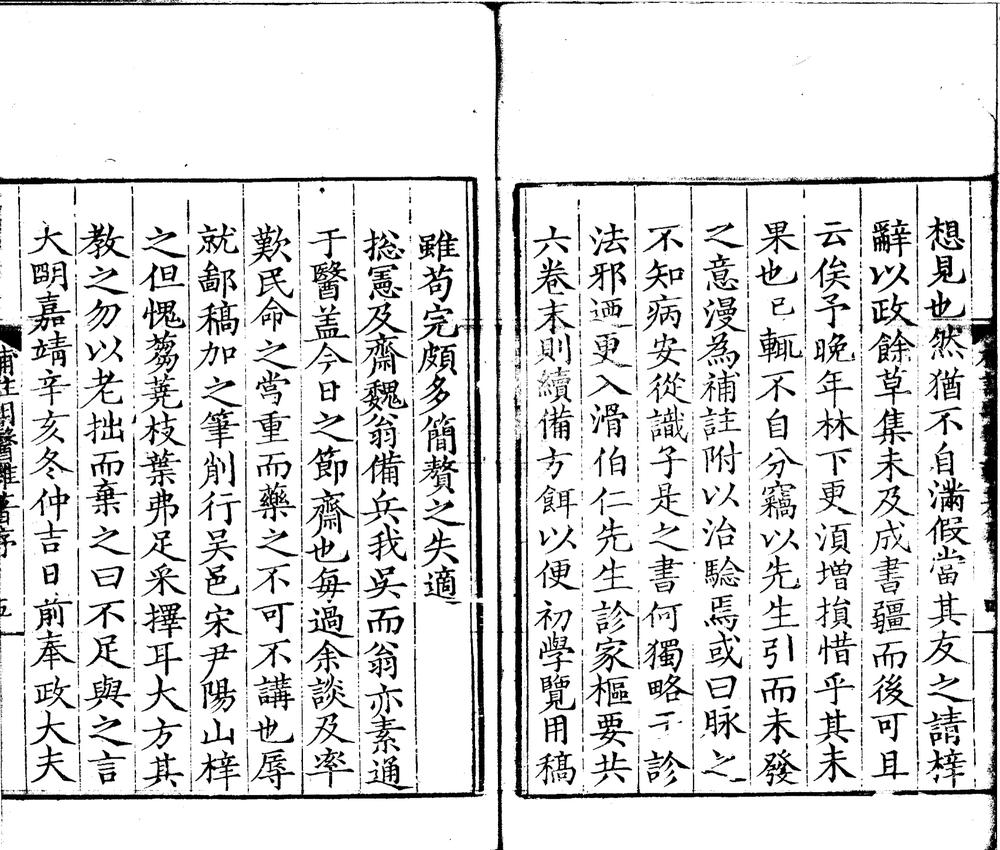 想見也然猶不自滿假當其友之請梓
辭以政餘草集未及成書疆而後可且
云俟予晚年林下更湏增損惜乎其未
果也已輒不自分竊以先生引而未發
之意漫為補註附以治驗焉或曰脉之
不知病安從識子是之書何獨略于診
法邪迺更入滑伯仁先生診家樞要共
六卷末則續備方餌以便初學覽用稿
雖苟完頗多簡贅之失適
揔憲及齋魏翁備兵我吳而翁亦素通
于醫葢今日之節齋也每過余談及率
歎民命之當重而藥之不可不講也辱
就鄙稿加之筆削行吴邑宋尹陽山梓
之但愧蒭蕘枝葉弗足采擇耳大方其
教之勿以老拙而棄之曰不足與之言
大明嘉靖辛亥冬仲吉日前奉政大夫
補註明醫雜著序 五